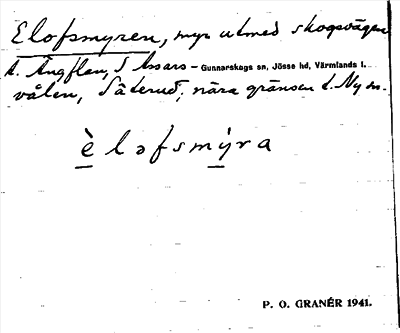 Elofsmyren, myr utmed skogsvägen
t. Ängflen, S Assars – Gunnarskogs sn, Jösse hd, Värmlands l.
vålen, Säterud, nära gränsen t. Ny sn.
è l ə f s m ý r a
P. O. GRANÉR 1941.